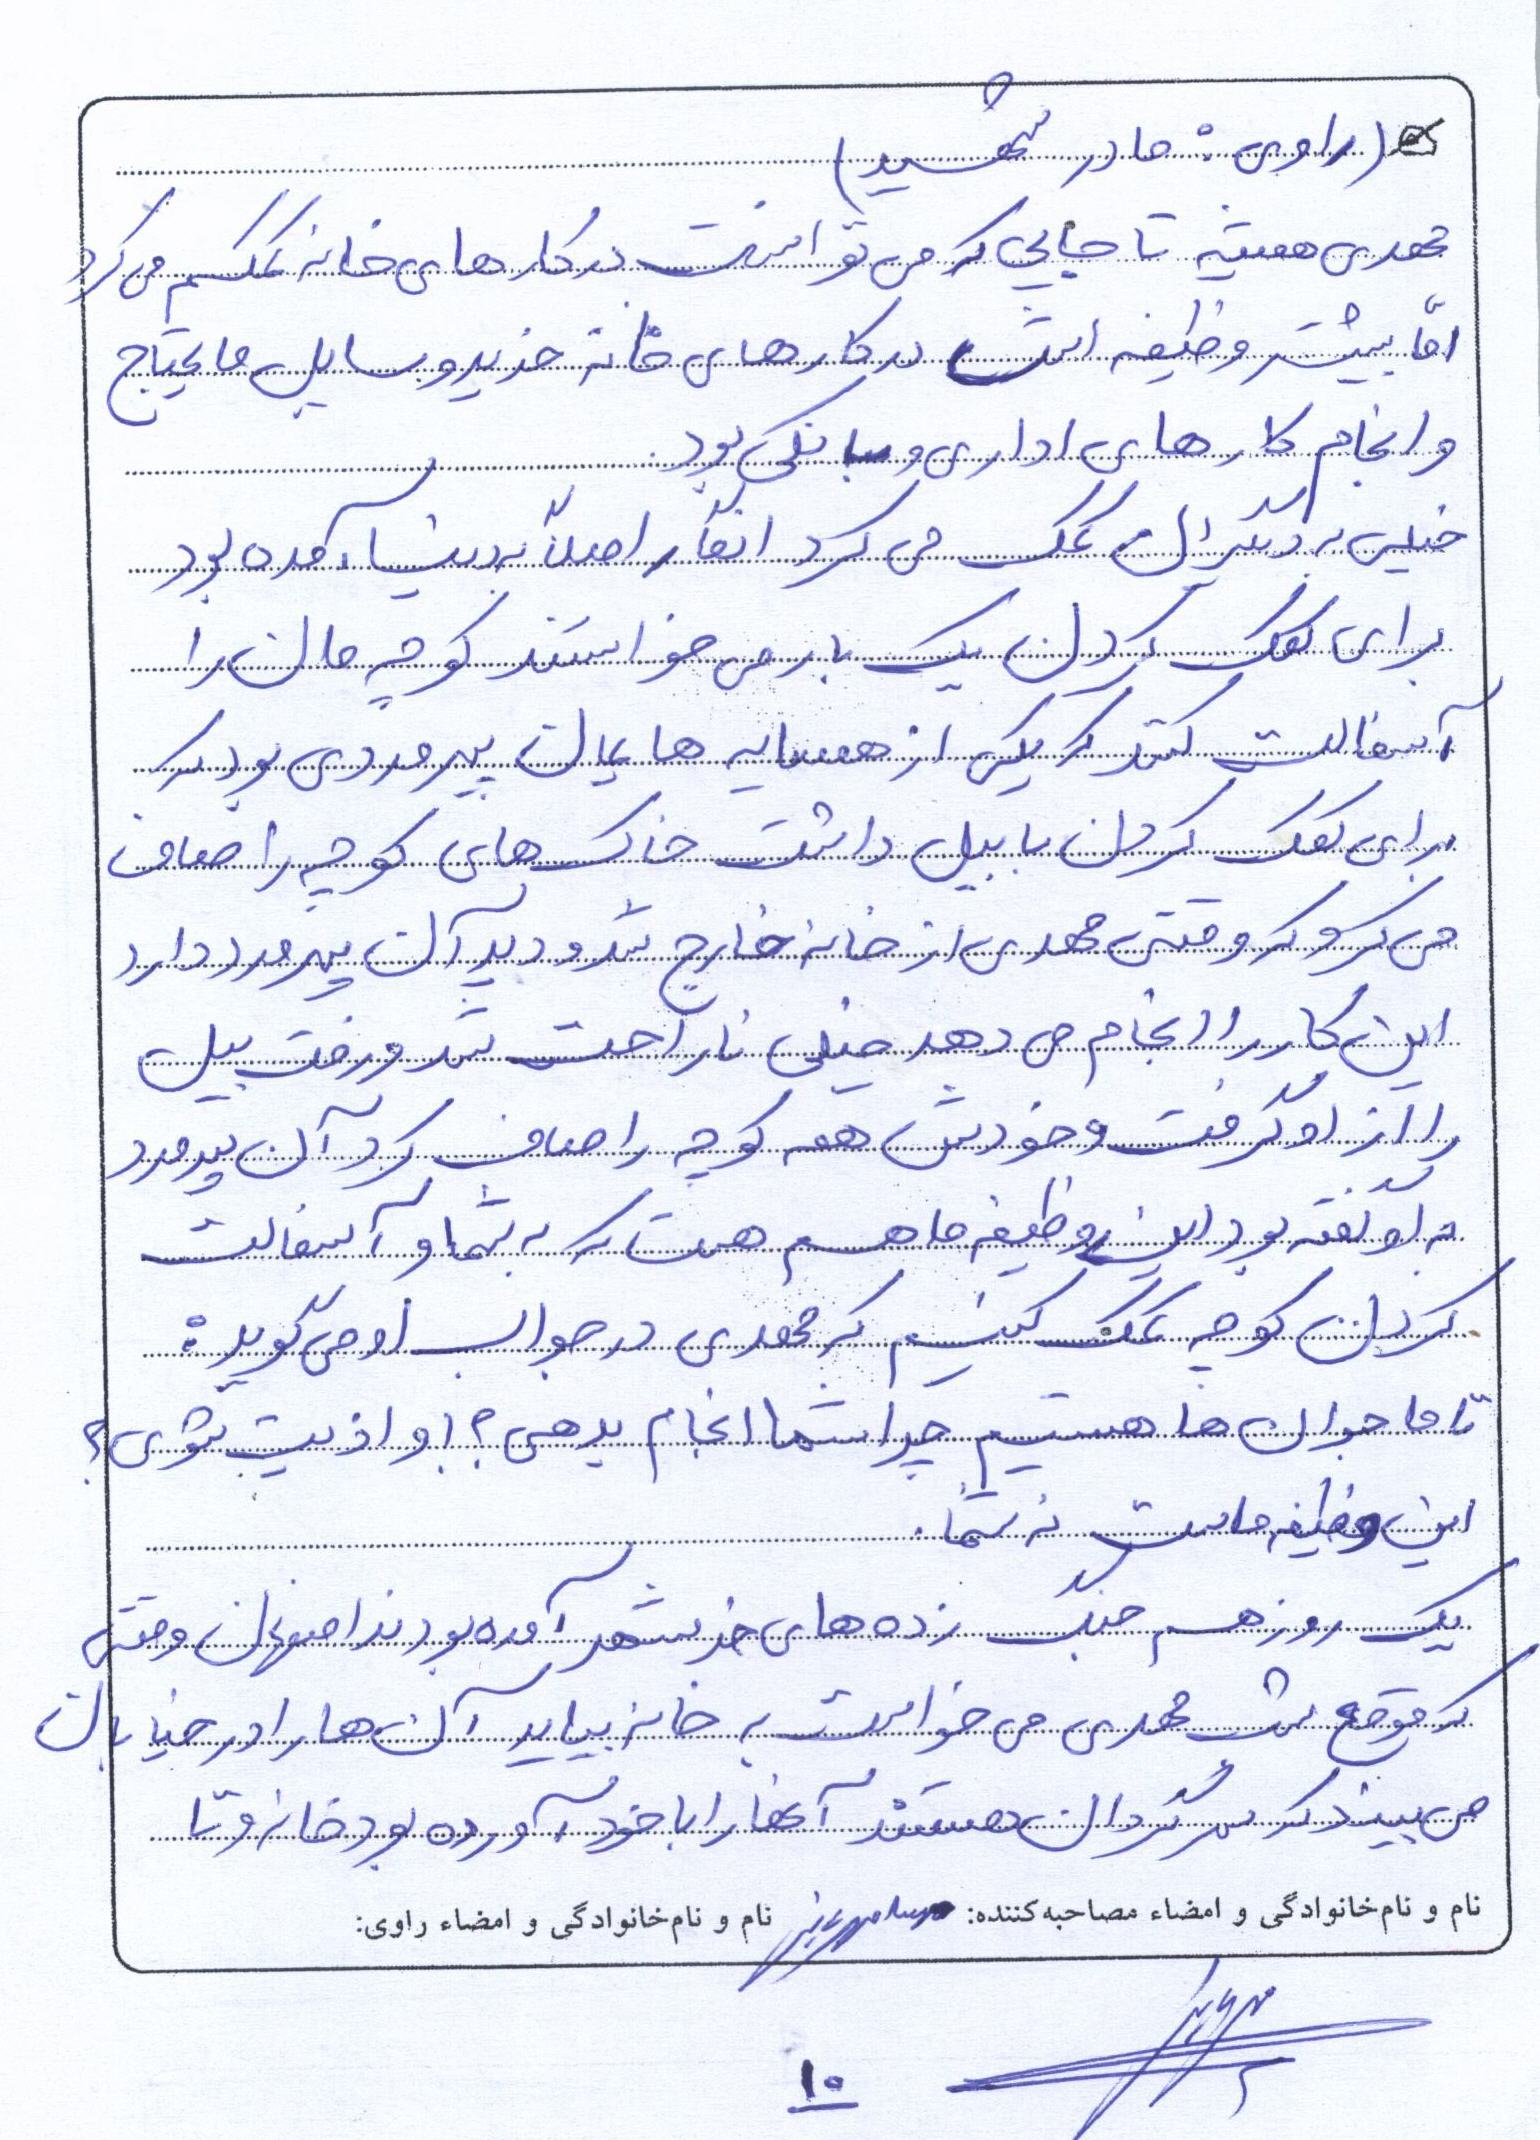 (راوی: مادر شهید)
مهدی همیشه تا جایی که می توانست در کارهای خانه کمکم می کرد
امّا بیشتر وظیفه اش در کارهای خانه خرید وسایل مایحتاج
و انجام کارهای اداری و بانکی بود.
خیلی به دیگران کمک می کرد انگار اصلاً به دنیا آمده بود
برای کمک کردن یک بار می خواستند کوچه مان را
آسفالت کنند که یکی از همسایه هایمان پیرمردی بود که
برای کمک کردن با بیل داشت خاک های کوچه را صاف
می کرد که وقتی مهدی از خانه خارج شد و دید آن پیرمرد دارد
این کار را انجام می دهد خیلی ناراحت شد و رفت بیل
را از او گرفت و خودش همه کوچه را صاف کرد آن پیرمرد
به او گفته بود این وظیفه ما هم هست که به شما و آسفالت
کردن کوچه کمک کنیم که مهدی در جواب او می گوید:
تا ما جوان ها هستیم چرا شما انجام بدهی؟ و اذیت بشوی؟
این وظیفه ماست نه شما.
یک روز هم جنگ زده های خرمشهر آمده بودند اصفهان وقتی
که موقع شب مهدی می خواست به خانه بیاید آن ها را در خیابان
می بیند که سرگردان هستند آنها را با خود آورده بود خانه و تا
نام و نام‌خانوادگی و امضاء مصاحبه‌کننده: نام و نام‌خانوادگی و امضاء راوی:
۱۰